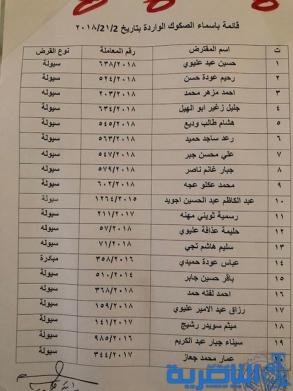 قائمة باسماء الصكوك الواردة بتاريخ ٢٠١٨/٢١/٢
ت اسم المقترض رقم المعاملة نوع القرض
١ حسين عبد عليوي ٦٣٨/٢٠١٨ سيولة
٢ رحيم عودة حسن ٥٢٤/٢٠١٨ سيولة
٣ احمد مزهر محمد ٢٠٣/٢٠١٨ سيولة
٤ جليل زغير ابو الهيل ٦٣٤/٢٠١٨ سيولة
٥ هشام طالب وديع ٥٤٥/٢٠١٨ سيولة
٦ رعد ساجد حميد ٥٦٣/٢٠١٨ سيولة
٧ علي محسن جبر ٥٤٧/٢٠١٨ سيوله
٨ جبار غانم ناصر ٥٧٩/٢٠١٨ سيولة
٩ محمد عكلو عجه ٦٠٢/٢٠١٨ سيولة
١٠ عبد الكاظم عبد الحسين اجويد ١٢٦٤/٢٠١٥ سيولة
١١ رسمية ثويني مهنه ٢١١/٢٠١٧ سيولة
١٢ حليمة عذافة عليوي ٥٧/٢٠١٨ سيولة
١٣ سليم هاشم تجي ٧١/٢٠١٨ سيوله
١٤ عباس عودة حميدي ٣٥٨/٢٠١٦ مبادرة
١٥ باقر حسين جابر ٥١٠/٢٠١٤ سيولة
١٦ احمد لفته حمد ٣٦٨/٢٠١٨ سيولة
١٧ رزاق عبد الامير عليوي ١٥٩/٢٠١٨ سيولة
١٨ ميثم سويدر رشيج ١٤١/٢٠١٧ سيولة
١٩ سيناء جبار عبد الكريم ٩٨٥/٢٠١٦ سيولة
٢٠ عمار محمد جعاز ٣٤٤/٢٠١٧ سيولة
الناصرية